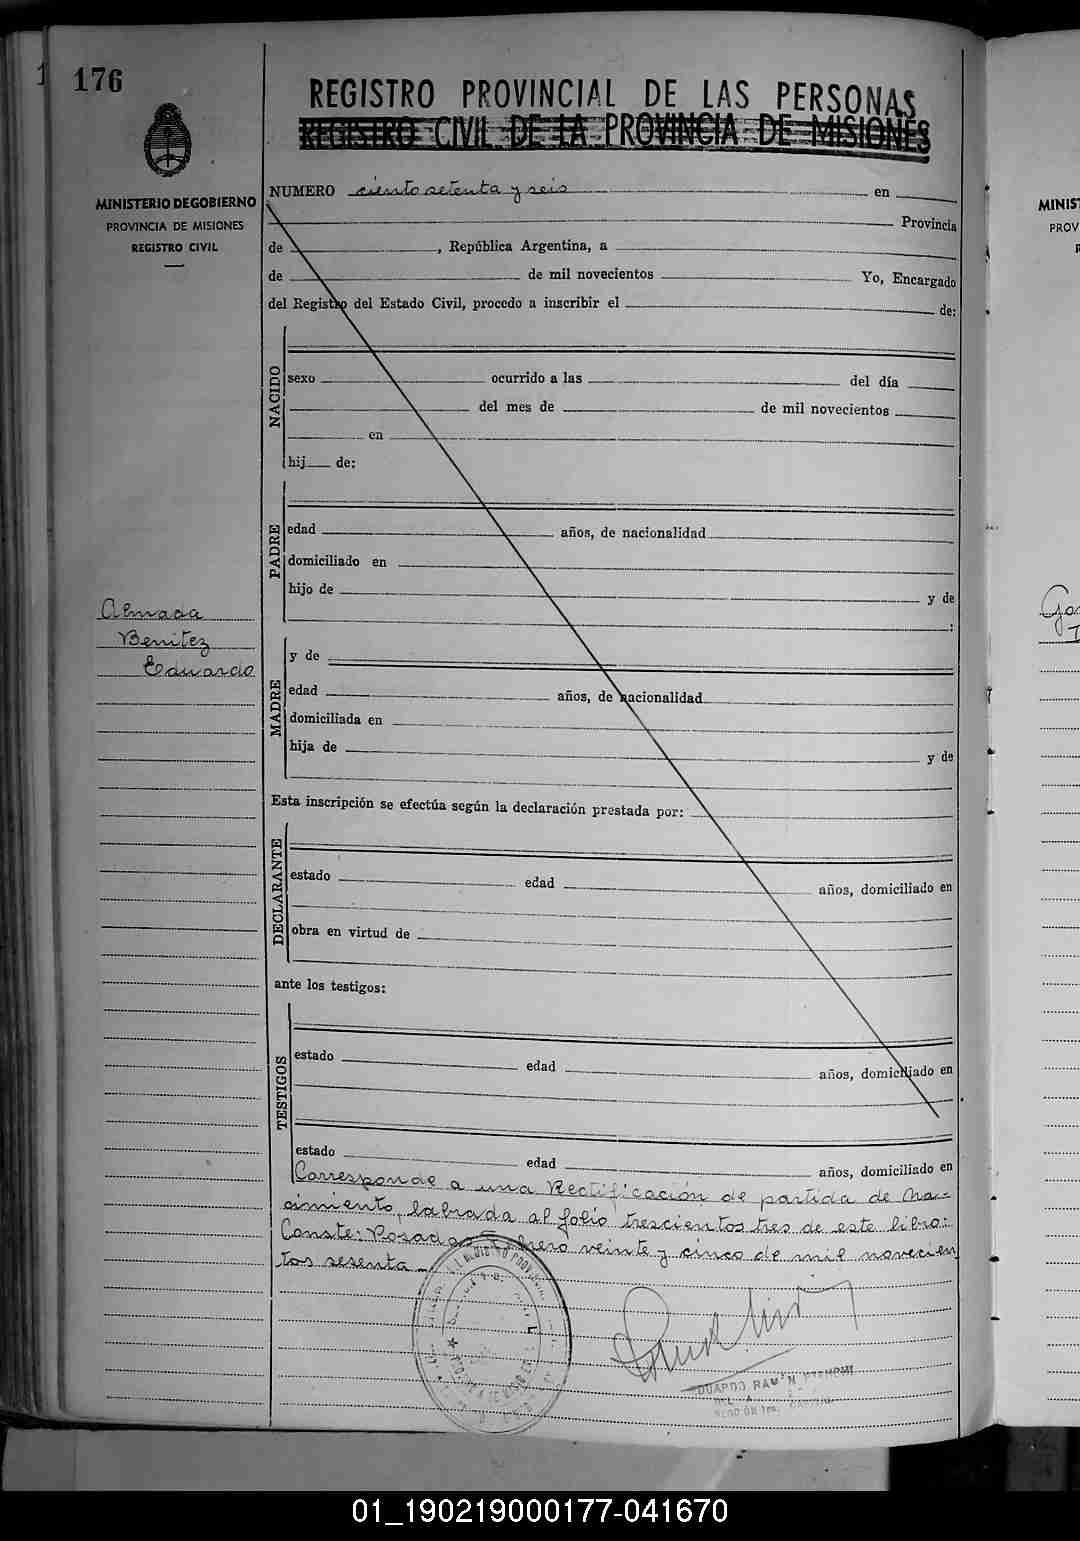 176
MINISTERIO DE GOBIERNO
PROVINCIA DE MISIONES
REGISTRO CIVIL
Almada
Benitez
Eduardo
REGISTRO PROVINCIAL DE LAS PERSONAS
REGISTRO CIVIL DE LA PROVINCIA DE MISIONES
NUMERO ciento setenta y seis en
Provincia
de , República Argentina, a
de de mil novecientos Yo, Encargado
del Registro del Estado Civil, procedo a inscribir el de:
NACIDO
sexo ocurrido a las del día
del mes de de mil novecientos
en
hij de:
PADRE
edad años, de nacionalidad
domiciliado en
hijo de y de
:
MADRE
y de
edad años, de nacionalidad
domiciliada en
hija de y de
Esta inscripción se efectúa según la declaración prestada por:
DECLARANTE
estado edad años, domiciliado en
obra en virtud de
ante los testigos:
TESTIGOS
estado edad años, domiciliado en
estado edad años, domiciliado en
Corresponde a una Rectificación de partida de Na-
cimiento, labrada al folio trescientos tres de este libro:
Conste: Posadas veinte y cinco de mil novecien
tos sesenta
RAMÓN
MINIST
PROV
01_190219000177-041670